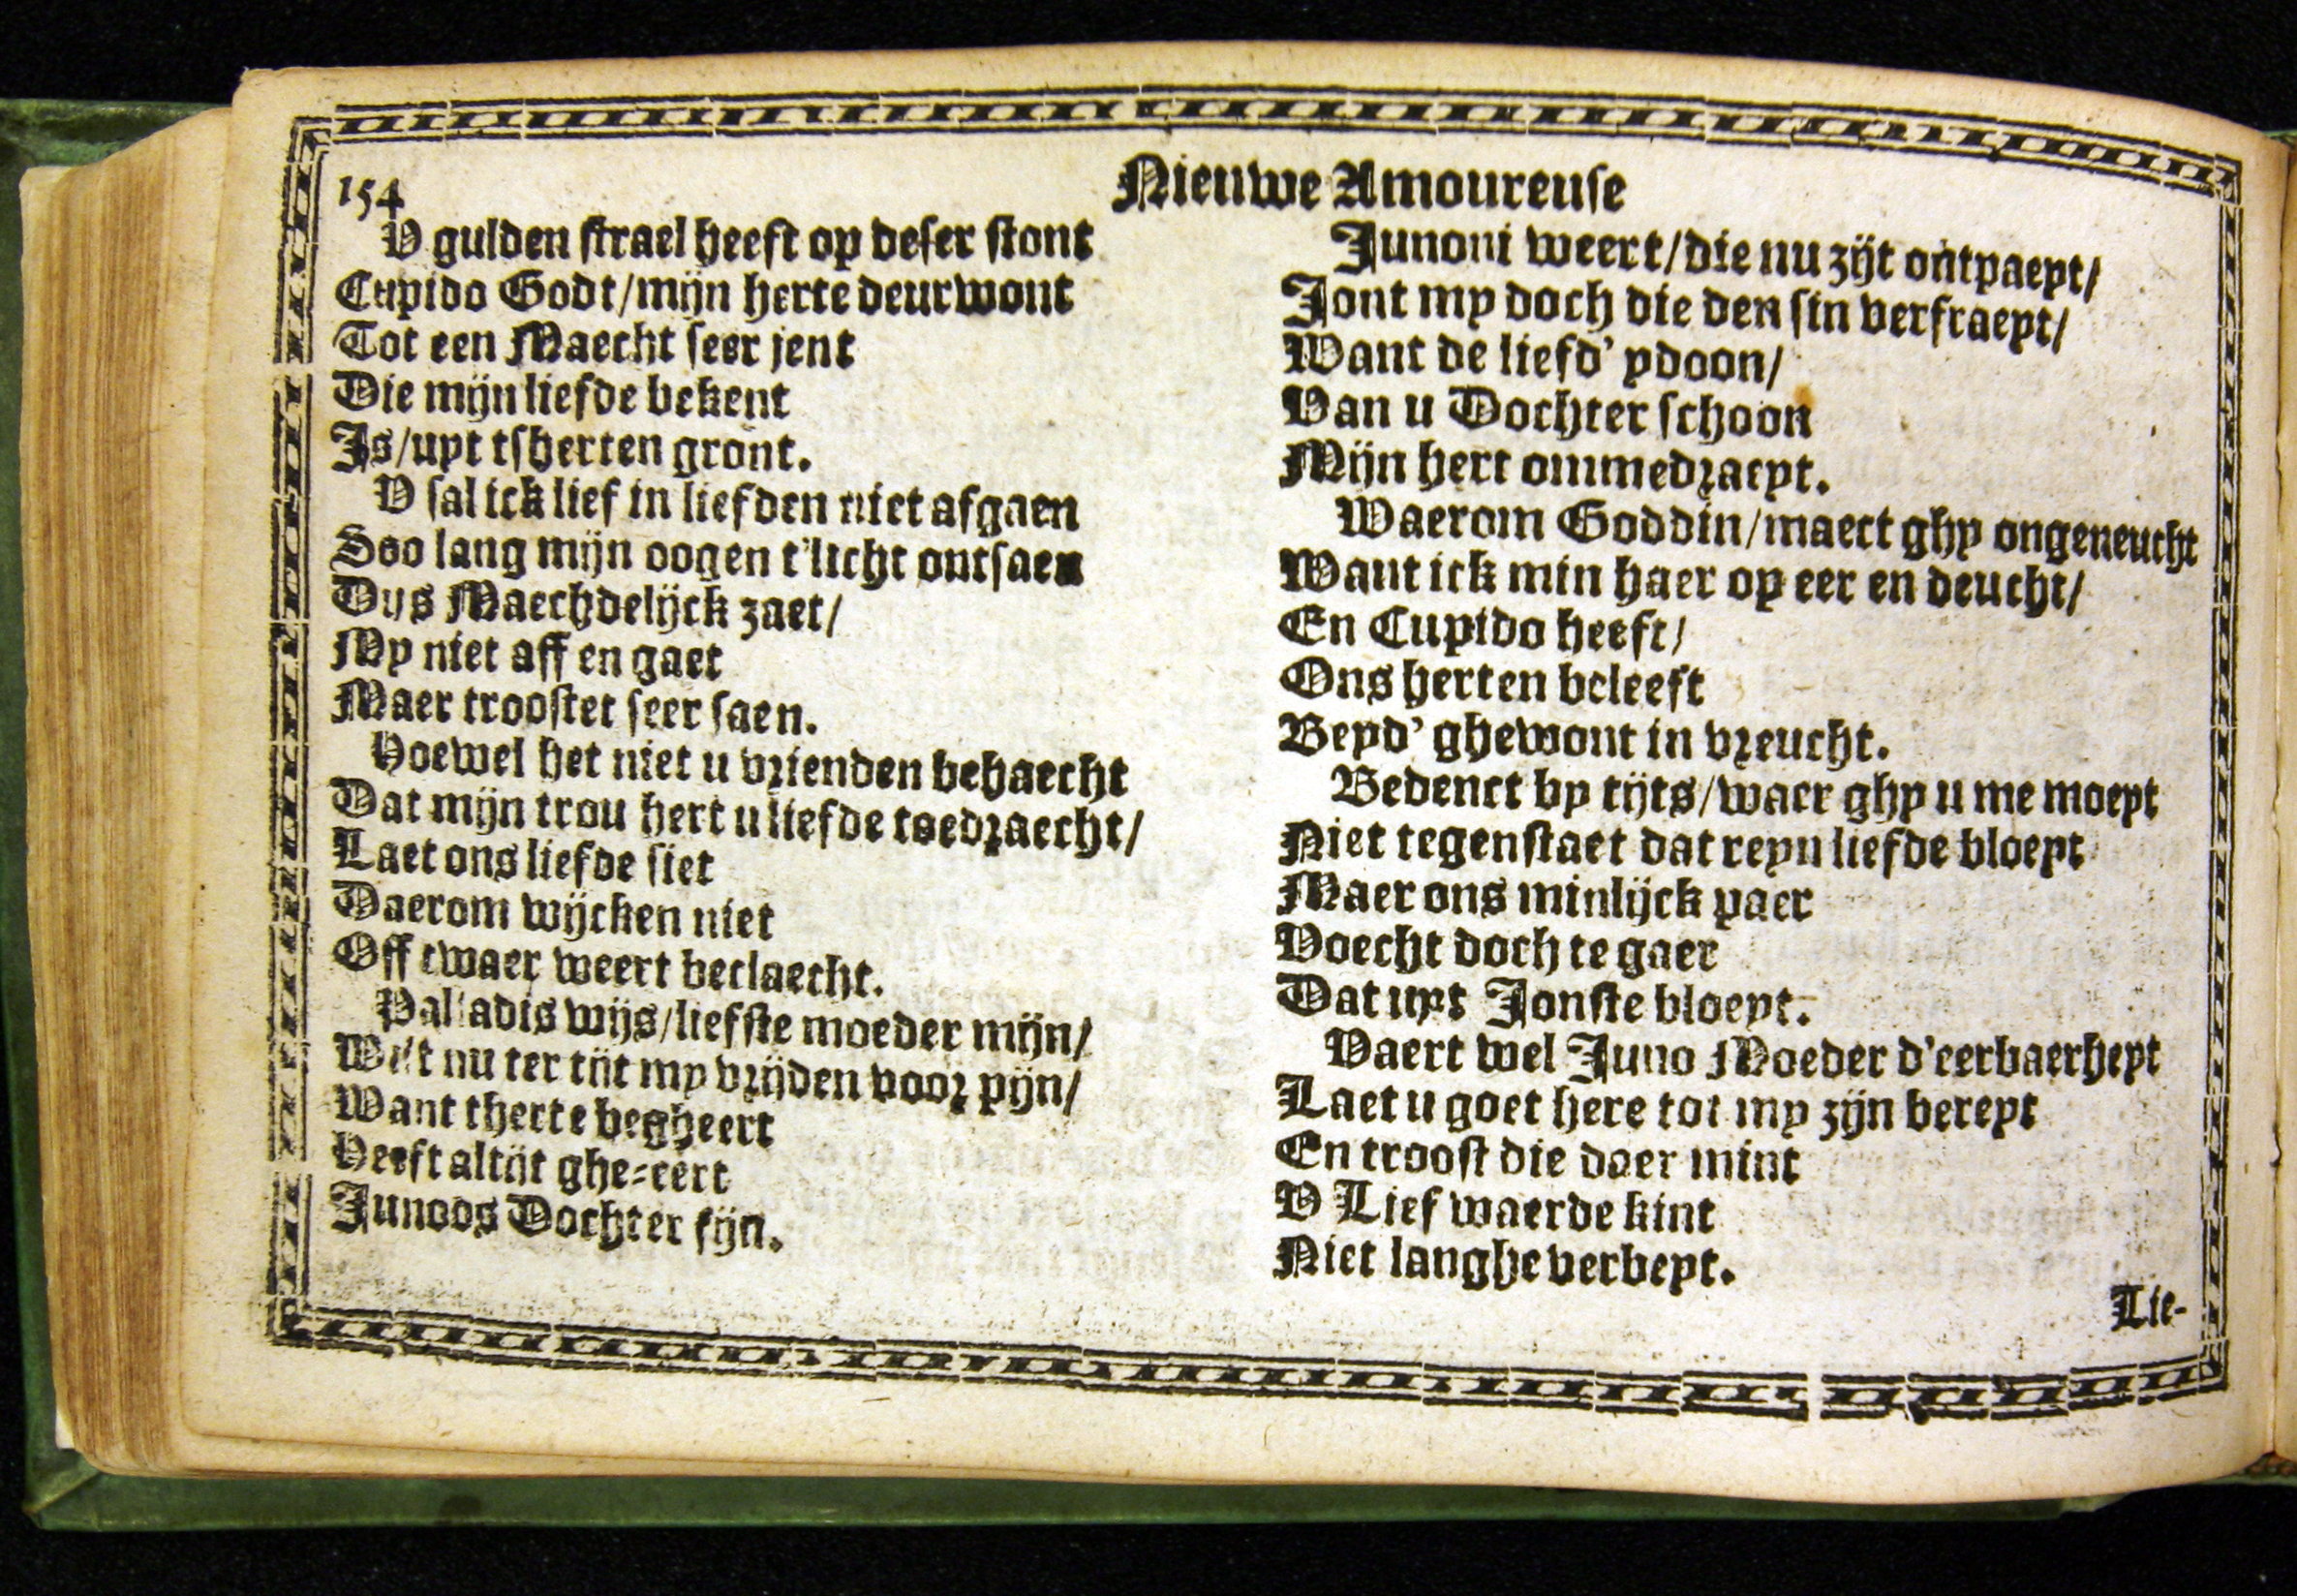 154
Nieuwe Amoureuse
V gulden strael heeft op deser stont
Cupido Godt/mijn herte deurwont
Tot een Maecht seer jent
Die mijn liefde bekent
Is/uyt tsherten gront.
V sal ick lief in liefden niet afgaen
Soo lang mijn oogen t'licht ontfaen
Dus Maechdelijck zaet/
My niet aff en gaet
Maer troostet seer saen.
Hoewel het niet u vrienden behaecht
Dat mijn trou hert u liefde toedraecht/
Laet ons liefde siet
Daerom wijcken niet
Off twaer weert beclaecht.
Palladis wijs/liefste moeder mijn/
Wilt nu ter tijt my vrijden voor pijn/
Want therte begheert
Heeft altijt ghe-eert
Junoos Dochter fijn.
Junoni weert/die nu zijt ontpaeyt/
Jont my doch die den sin verfraeyt/
Want de liefd' ydoon/
Van u Dochter schoon
Mijn hert ommedraeyt.
Waerom Goddin/maect ghy ongeneucht
Want ick min haer op eer en deucht/
En Cupido heeft/
Ons herten beleeft
Beyd' ghewont in vreucht.
Bedenct by tijts/waer ghy u me moeyt
Niet tegenstaet dat reyn liefde bloeyt
Maer ons minlijck paer
Voecht doch te gaer
Dat uyt Jonste bloeyt.
Vaert wel Juno Moeder d'eerbaerheyt
Laet u goet here tot my zijn bereyt
En troost die daer mint
V Lief waerde kint
Niet langhe verbeyt.
Lie-